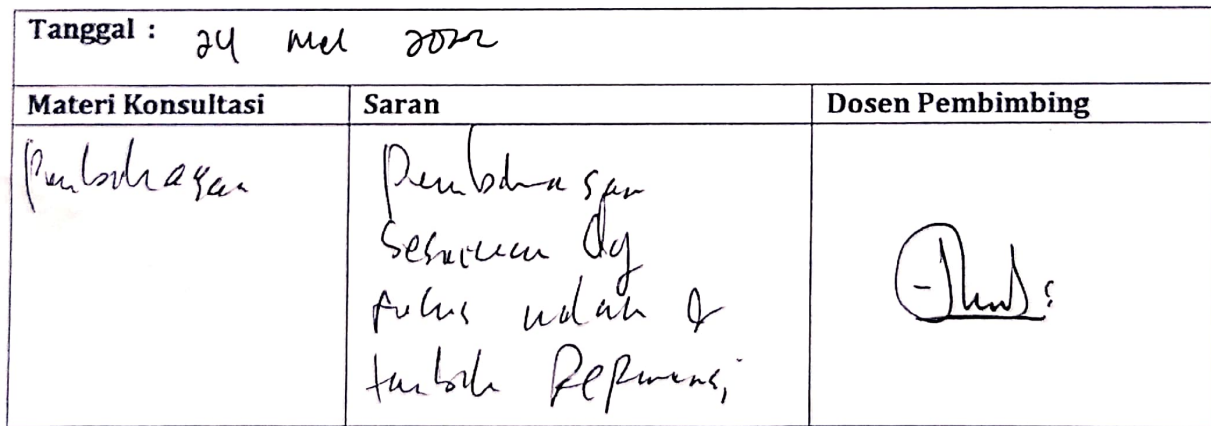 Tanggal : 24 Mei 2022
Materi Konsultasi Saran Dosen Pembimbing
Pembahasan
Pembahasan
Sesuaikan dg
fokus &
tambah Referensi